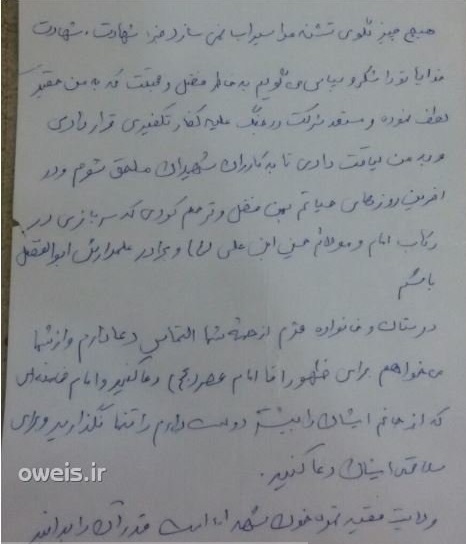 هیچ چیز گلوی تشنه مرا سیراب نمی سازد جز: شهادت، شهادت
خدایا تو را شکر و سپاس می گویم به خاطر فضل و که به من حقیر
لطف نموده و مستعد شرکت در جنگ علیه کفار تکفیری قرار دادی
و به من لیاقت دادی تا به کاروان شهیدان ملحق شوم و در
آخرین روزهای حیاتم بمن فضل و ترحم کردی که سربازی در
رکاب امام و مولایم حسین ابن علی (ع) و برادر علمدارش ابوالفضل
باشم
دوستان و خانواده عزیزم از همه شما التماس دعا دارم و از شما
می خواهم برای ظهور آقا امام عصر (عج) دعا کنید و امام خامنه ای
که از جانم ایشان را بیشتر دوست دارم را تنها نگذارید و برای
سلامتی ایشان دعا کنید.
ولایت فقیه ثمره خون شهدا است قدر آن را بدانید
oweis.ir